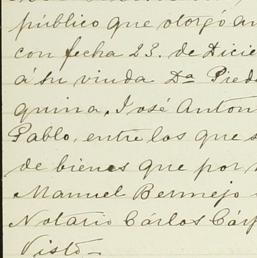 público que otorgó an
con fecha 23. de Dicie
á su viuda Da Pied
quina, José Anton
Pablo, entre los que s
de bienes que por
Manuel Bermejo
Notario Cárlos Cárp
Visto-